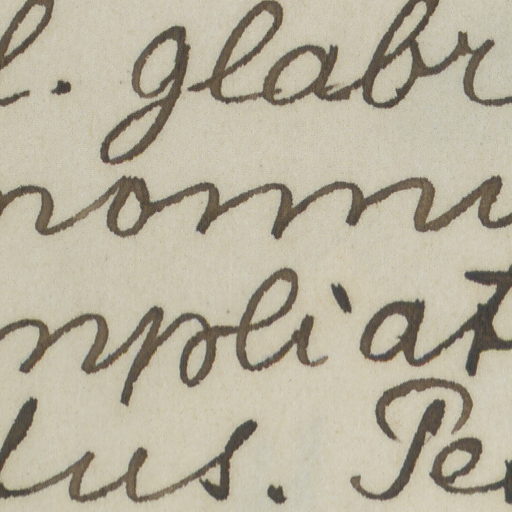 l. glabr
nomu
mpliat
lus. Pe